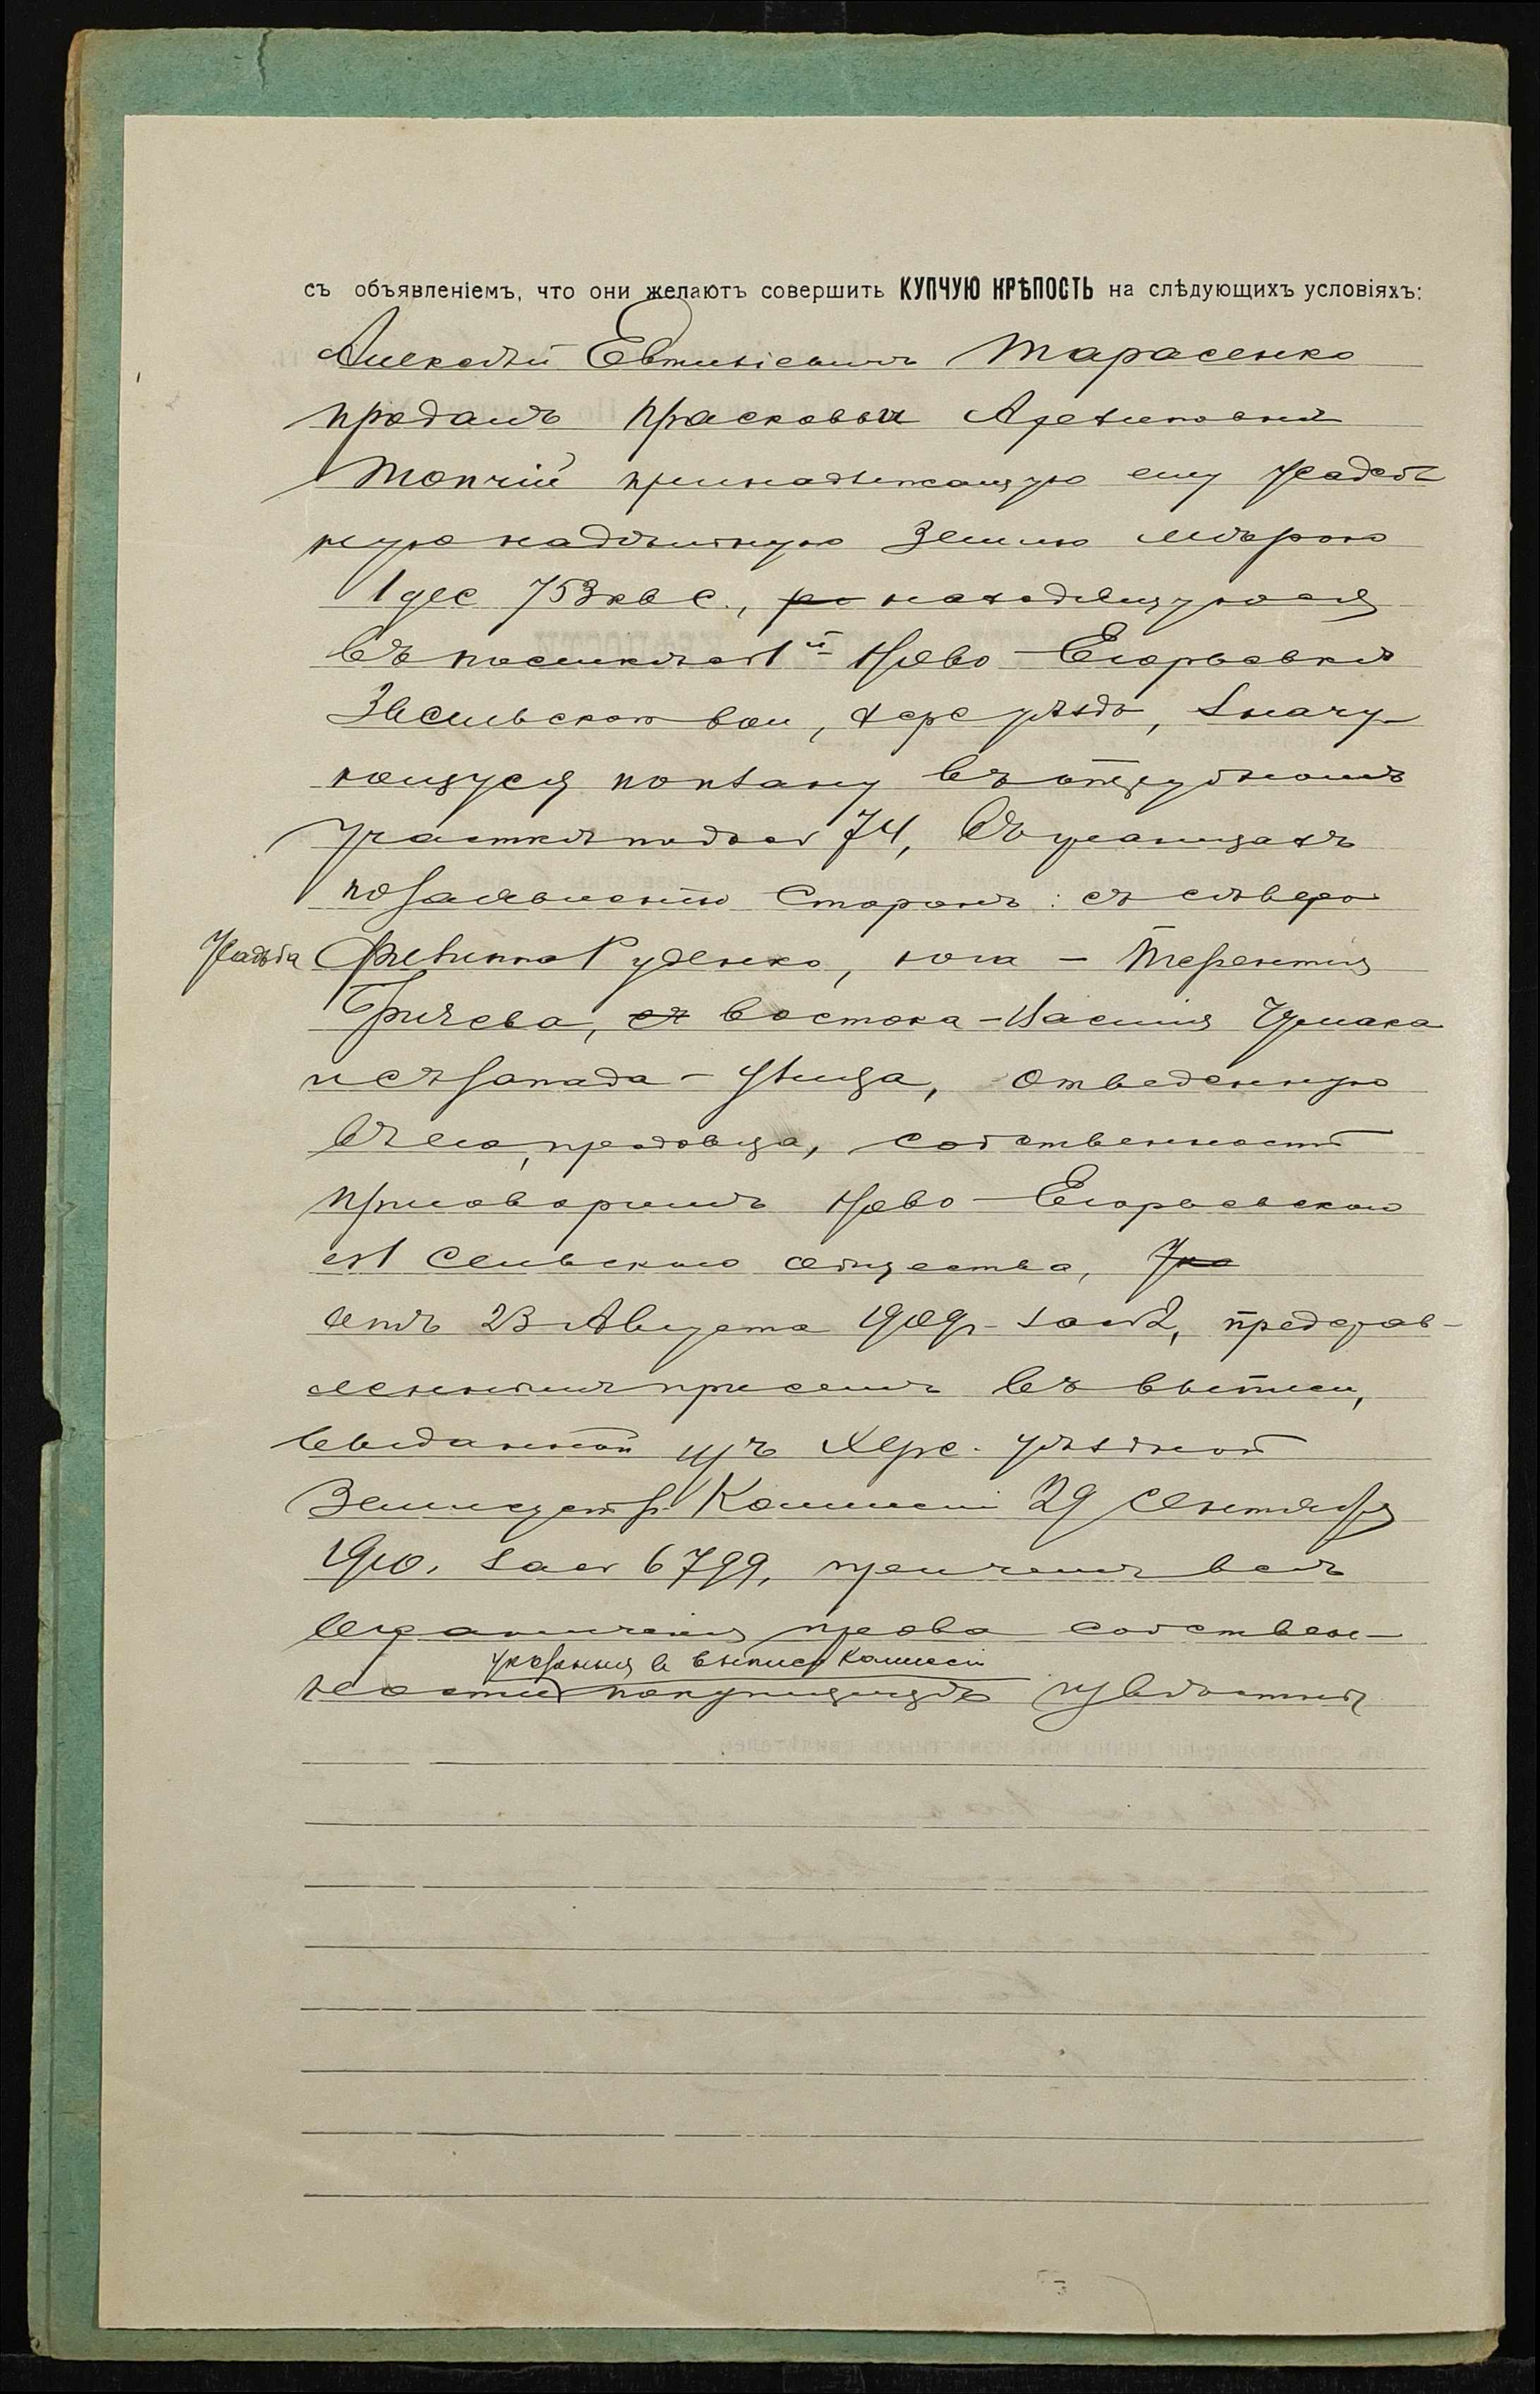 съ объявленіемъ, что они желаютъ совершить КУПЧУЮ КРѢПОСТЬ на слѣдующихъ условіяхъ:
Алексѣй Евтихіевичъ Тарасенко
продалъ Прасковьи
Топчій принадлежащую ему усадеб
ную надѣльную землю мѣрою
1 дес 753 кв с., находящуюся
въ поселкѣ 1й Ново-Егорьевкѣ
вол, Херс уѣзда, значу
ющуюся по плану въ отрубномъ
участкѣ подъ № 74, въ границахъ
по заявленію сторонъ: съ сѣвера
Усадьба Филиппа Руденко, юга - Терентія
Гричева, съ востока - Василія Чумака
и съ запада - улица, отведенную
въ его, продавца, собственность
приговоромъ Ново-Егорьевскаго
№1 сельскаго общества,
отъ 23 Августа 1909 г. за №2, представ-
леннымъ при семъ въ выписи,
выданной изъ Херс. уѣздной
Землеустр. Комиссіи 29 Сентября
1910. за № 6799, причемъ всѣ
ограниченія права собствен-
указанныя въ выписи Комиссіи
ности покупщицѣ извѣстны